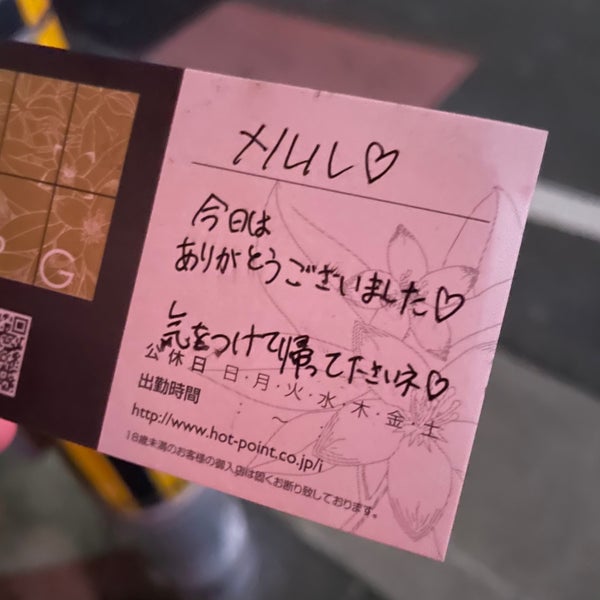 メルル♡
今日は
ありがとうございました♡
気をつけて帰ってださいネ♡
公休日 日・月・火・水・木・金・土
出勤時間 : ～ :
http://www.hot-point.co.jp/i
18歳未満のお客様の御入店は固くお断り致しております。
G